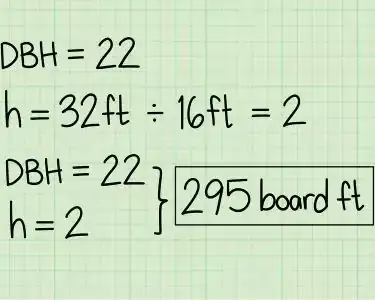 DBH = 22
h = 32ft ÷ 16ft = 2
DBH = 22
h = 2
295 board ft